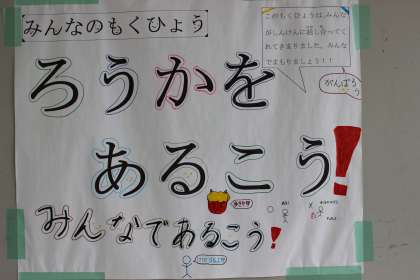 【みんなのもくひょう】
このもくひょうは、みんな
がしんけんに話し合ってく
れてきまりました。みんな
でまもりましょう!!
がんばろう
ろうかを
あるこう!
みんなであるこう!